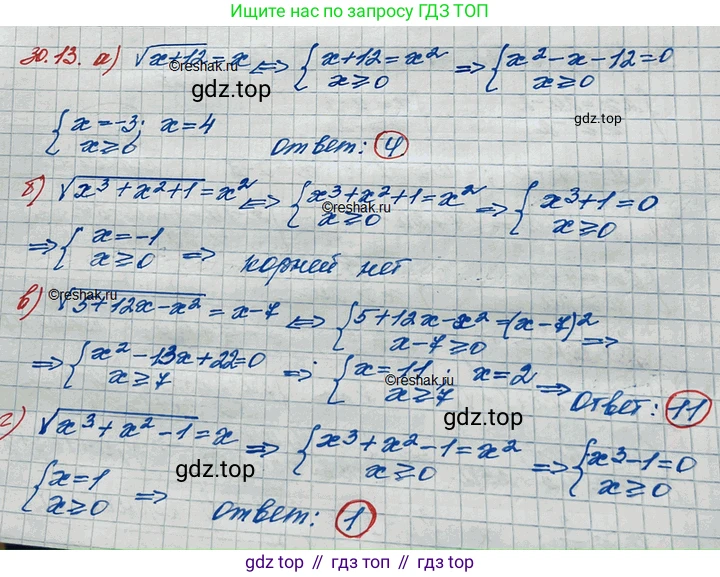 Ищите ответы по запросу ГДЗ ТОП
30.13. а) √(x+12) = x ⇔ { x+12 = x² ; x ≥ 0 ⇒ { x² - x - 12 = 0 ; x ≥ 0
©reshak.ru
gdz.top
©reshak.ru
gdz.top
{ x = -3; x = 4 ; x ≥ 0 ответ: 4
б) √(x³ + x² + 1) = x² ⇔ { x³ + x² + 1 = x² ; x ≥ 0 ⇒ { x³ + 1 = 0 ; x ≥ 0
©reshak.ru
⇒ { x = -1 ; x ≥ 0 ⇒ корней нет
©reshak.ru
в) √(5 + 12x - x²) = x - 7 ⇔ { 5 + 12x - x² = (x - 7)² ; x - 7 ≥ 0 ⇒
⇒ { x² - 13x + 22 = 0 ; x ≥ 7 ⇒ { x = 11; x = 2 ; x ≥ 7 ⇒ Ответ: 11
©reshak.ru
gdz.top
г) √(x³ + x² - 1) = x ⇒ { x³ + x² - 1 = x² ; x ≥ 0 ⇒ { x³ - 1 = 0 ; x ≥ 0
gdz.top
{ x = 1 ; x ≥ 0 ⇒ ответ: 1
gdz top // гдз топ // gdz.top // гдз.топ